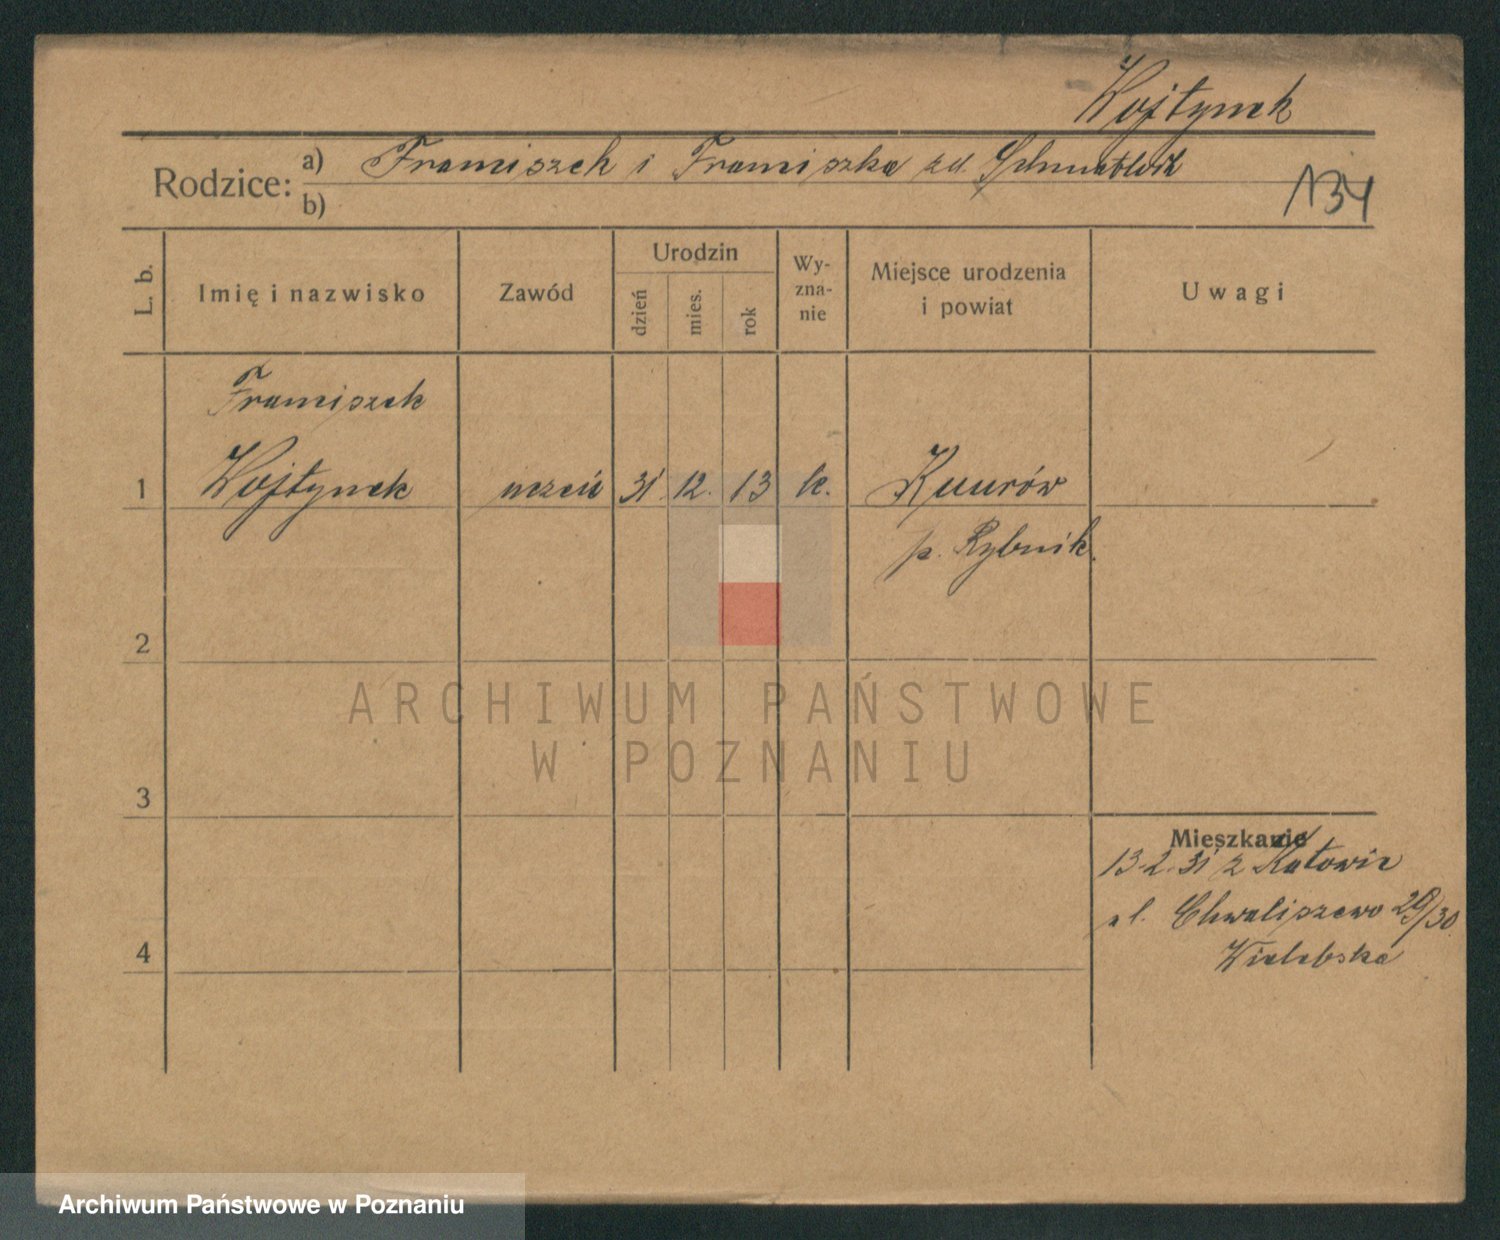 Wojtynek
Rodzice: a) Franciszek i Franciszka zd.
b)
134
L. b. Imię i nazwisko Zawód Urodzin dzień mies. rok Wy-zna-nie Miejsce urodzenia i powiat Uwagi
Franciszek
1 Wojtynek uczeń 31 12. 13 k. Knurów
p. Rybnik.
2
3
Mieszkanie
13.2.31 z Katowic
ul. Chwaliszewo 29/30
4 Wielebska
ARCHIWUM PAŃSTWOWE
W POZNANIU
Archiwum Państwowe w Poznaniu